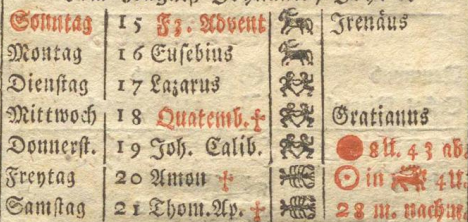 Sonntag 15 F3. Advent Irenäus
Montag 16 Eusebius
Dienstag 17 Lazarus
Mittwoch 18 Quatemb. † Gratianus
Donnerst. 19 Joh. Calib. 8 U. 43 ab
Freytag 20 Amon † in 4 U.
Samstag 21 Thom. Ap. † 28 m. nachm